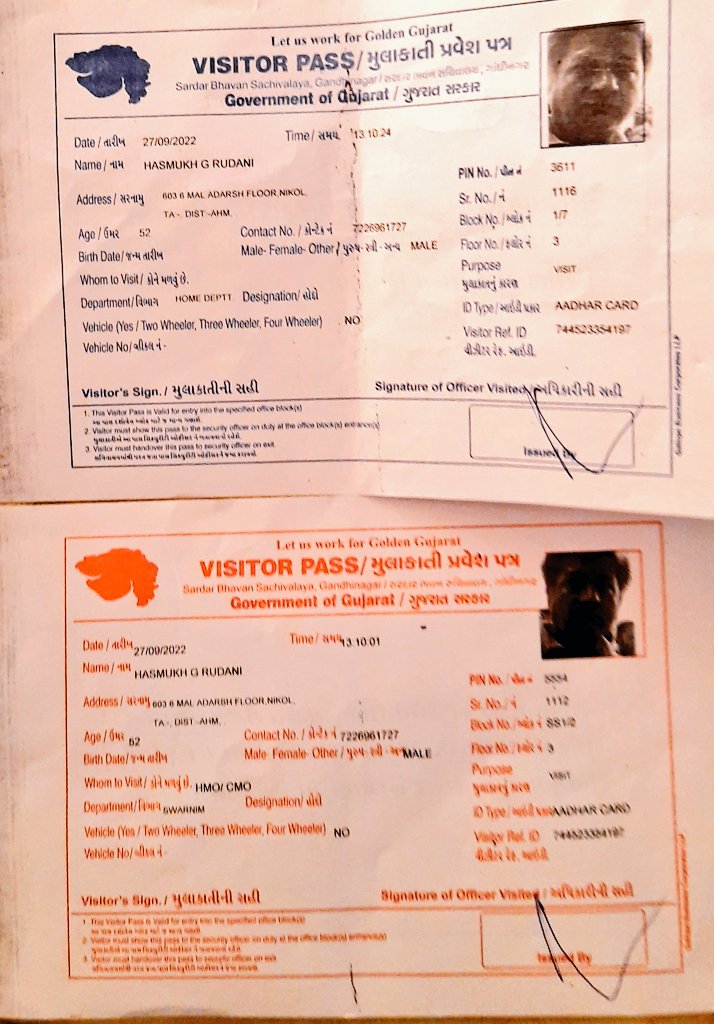 Let us work for Golden Gujarat
VISITOR PASS/મુલાકાતી પ્રવેશ પત્ર
Sardar Bhavan Sachivalaya, Gandhinagar / સરદાર ભવન સચિવાલય, ગાંધીનગર
Government of Gujarat / ગુજરાત સરકાર
Date / તારીખ 27/09/2022 Time / સમય 13:10:24
Name / નામ HASMUKH G RUDANI
PIN No. / પીન નં 3611
Address / સરનામુ 603 6 MAL ADARSH FLOOR,NIKOL,
Sr. No. / નં 1116
TA -, DIST:-AHM,
Block No. / બ્લોક નં 1/7
Age / ઉંમર 52 Contact No. / કોન્ટેક નં 7226961727
Floor No. / ફ્લોર નં 3
Birth Date / જન્મ તારીખ Male- Female- Other / પુરુષ- સ્ત્રી - અન્ય MALE
Purpose VISIT
મુલાકાતનું કારણ
Whom to Visit / કોને મળવું છે.
Department/વિભાગ HOME DEPTT. Designation/ હોદ્દો
ID Type / આઈડી પ્રકાર AADHAR CARD
Vehicle (Yes / Two Wheeler, Three Wheeler, Four Wheeler) NO
Visitor Ref. ID 744523354197
Vehicle No/ વીહકલ નં -
વીઝીટર રેફ. આઈડી.
Visitor's Sign. / મુલાકાતીની સહી Signature of Officer Visited / અધિકારીની સહી
1. This Visitor Pass is Valid for entry into the specified office block(s)
2. Visitor must show this pass to the security officer on duty at the office block(s) entrance(s)
3. Visitor must handover this pass to security officer on exit.
Issued By
Let us work for Golden Gujarat
VISITOR PASS/મુલાકાતી પ્રવેશ પત્ર
Sardar Bhavan Sachivalaya, Gandhinagar / સરદાર ભવન સચિવાલય, ગાંધીનગર
Government of Gujarat / ગુજરાત સરકાર
Date / તારીખ 27/09/2022 Time / સમય 13:10:01
Name / નામ HASMUKH G RUDANI
PIN No. / પીન નં
Address / સરનામુ 603 6 MAL ADARSH FLOOR,NIKOL,
Sr. No. / નં 1112
TA -, DIST:-AHM,
Block No. / બ્લોક નં SS1/2
Age / ઉંમર 52 Contact No. / કોન્ટેક નં 7226961727
Floor No. / ફ્લોર નં 3
Birth Date / જન્મ તારીખ Male- Female- Other / પુરુષ- સ્ત્રી - અન્ય MALE
Purpose VISIT
મુલાકાતનું કારણ
Whom to Visit / કોને મળવું છે. HMO/ CMO
Department/વિભાગ SWARNIM Designation/ હોદ્દો
ID Type / આઈડી પ્રકાર AADHAR CARD
Vehicle (Yes / Two Wheeler, Three Wheeler, Four Wheeler) NO
Visitor Ref. ID 744523354197
Vehicle No/ વીહકલ નં -
વીઝીટર રેફ. આઈડી.
Visitor's Sign. / મુલાકાતીની સહી Signature of Officer Visited / અધિકારીની સહી
1. This Visitor Pass is Valid for entry into the specified office block(s)
2. Visitor must show this pass to the security officer on duty at the office block(s) entrance(s)
3. Visitor must handover this pass to security officer on exit.
Issued By